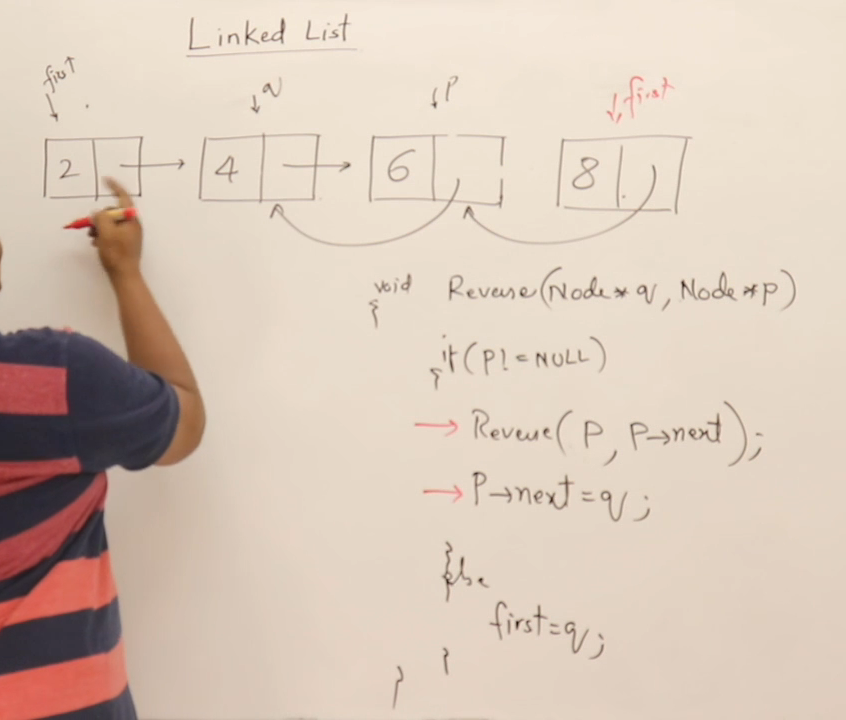 Linked List
first q p first
2 4 6 8
void Reverse(Node* q, Node *p)
{
if(P!=NULL)
{
Reverse(P, P→next);
P→next=q;
}else
first=q;
}
}